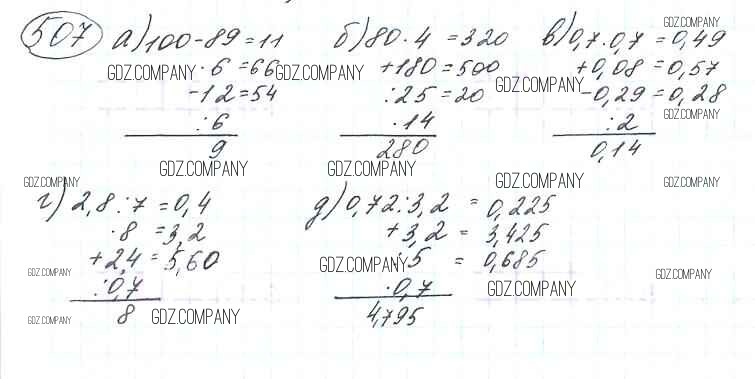 507 а) 100-89=11 б) 80·4=320 в) 0,7·0,7=0,49 GDZ.COMPANY
GDZ.COMPANY ·6=66 GDZ.COMPANY +180=500 +0,08=0,57
-12=54 :25=20 GDZ.COMPANY -0,29=0,28
:6 ·14 :2 GDZ.COMPANY
9 280 0,14
GDZ.COMPANY GDZ.COMPANY
GDZ.COMPANY GDZ.COMPANY GDZ.COMPANY
г) 2,8:7=0,4 д) 0,72:3,2=0,225
·8=3,2 +3,2=3,425
+2,4=5,60 GDZ.COMPANY 5=0,685
GDZ.COMPANY GDZ.COMPANY
:0,7 ·0,7 GDZ.COMPANY
8 4,795
GDZ.COMPANY GDZ.COMPANY